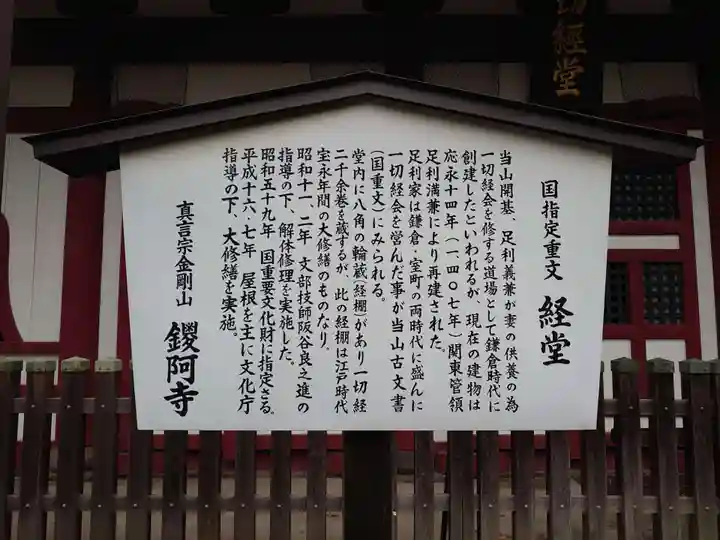 切經堂
国指定重文 経堂
当山開基、足利義兼が妻の供養の為
一切経会を修する道場として鎌倉時代に
創建したといわれるが、現在の建物は
応永十四年(一四〇七年)関東管領
足利満兼により再建された。
足利家は鎌倉・室町の両時代に盛んに
一切経会を営んだ事が当山古文書
(国重文)にみられる。
堂内に八角の輪蔵(経棚)があり一切経
二千余巻を蔵するが、此の経棚は江戸時代
宝永年間の大修繕のものなり。
昭和十一、二年 文部技師阪谷良之進の
指導の下、解体修理を実施した。
昭和五十九年 国重要文化財に指定さる。
平成十六、七年 屋根を主に文化庁
指導の下、大修繕を実施。
真言宗金剛山 鑁阿寺